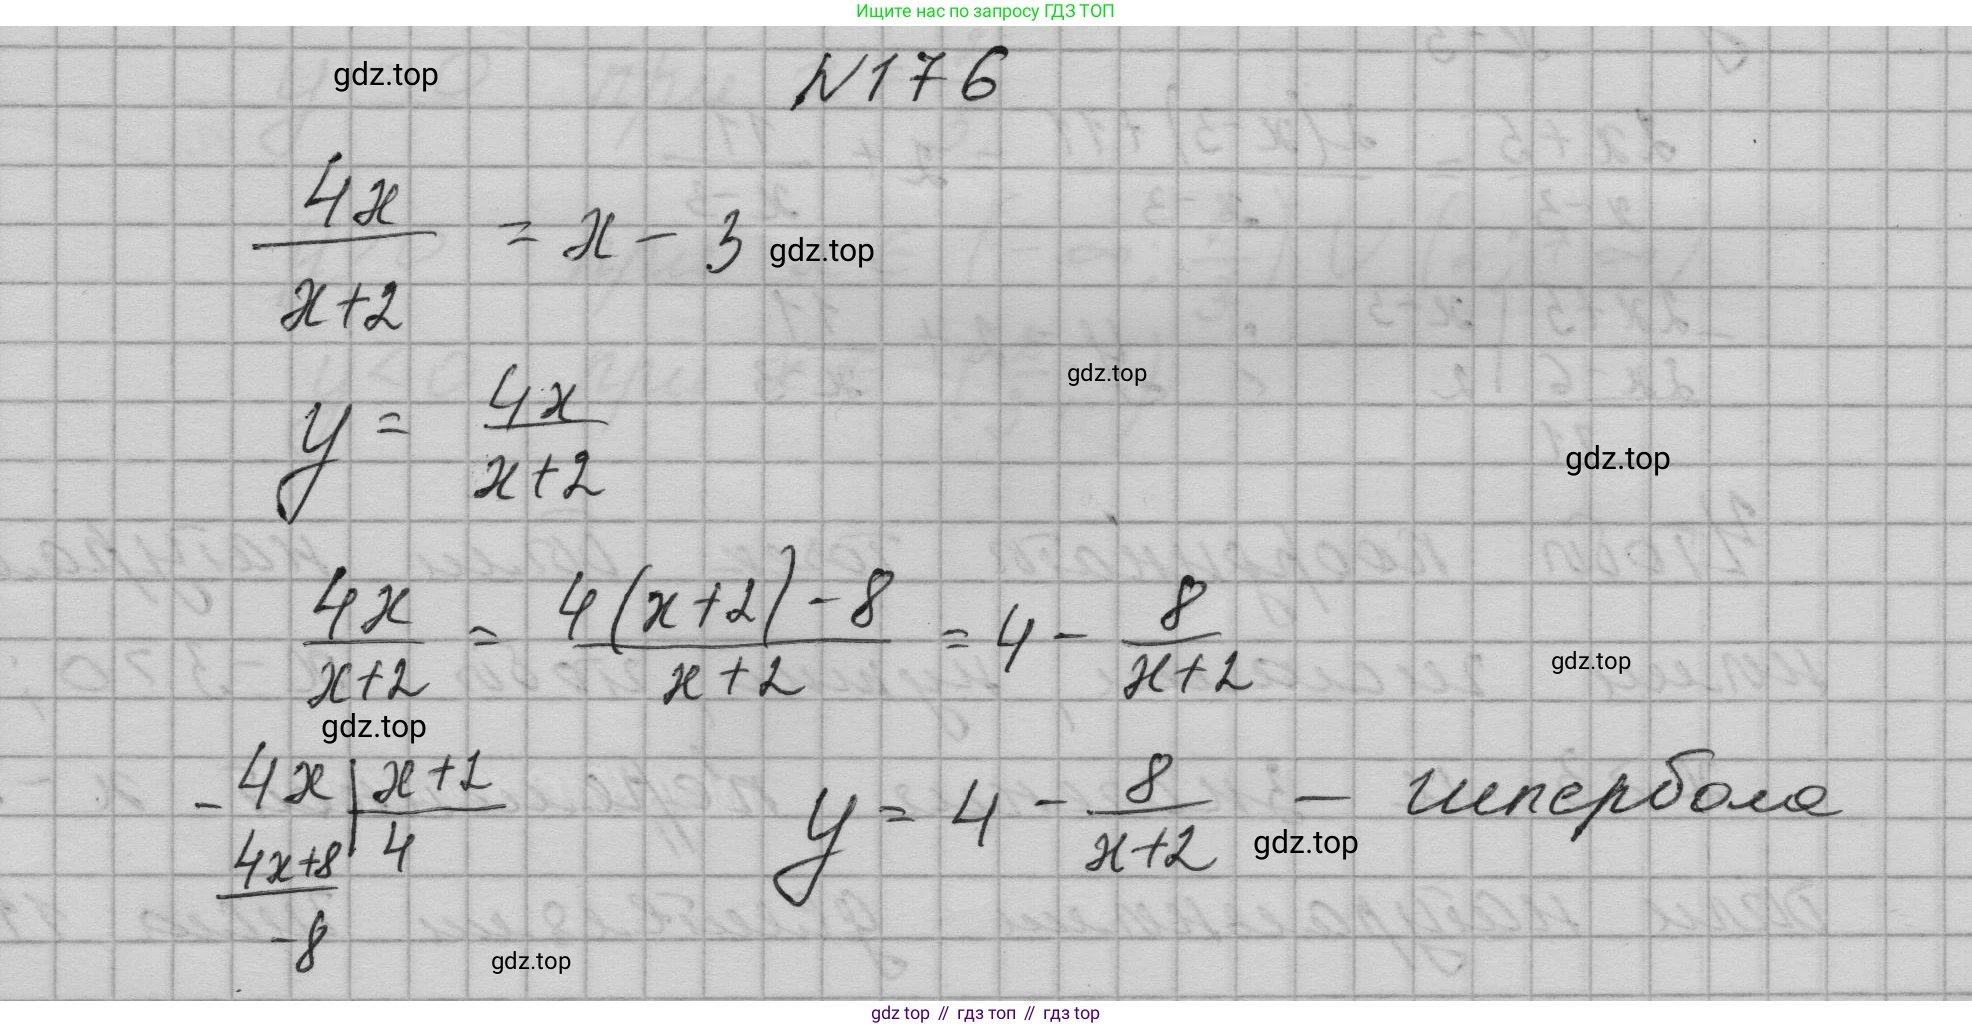 Ищите нас по запросу ГДЗ ТОП
gdz.top
N176
4x/(x+2) = x - 3
gdz.top
gdz.top
y = 4x/(x+2)
gdz.top
4x/(x+2) = (4(x+2) - 8)/(x+2) = 4 - 8/(x+2)
gdz.top
gdz.top
- 4x | x+2
4x+8 | 4
-8
y = 4 - 8/(x+2) — гипербола
gdz.top
gdz.top
gdz top // гдз топ // гдз top